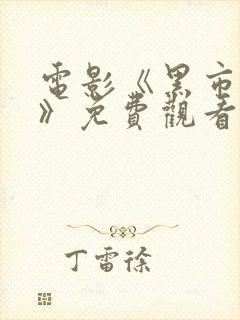 電影《黑市
》免費觀看
丁雷徐